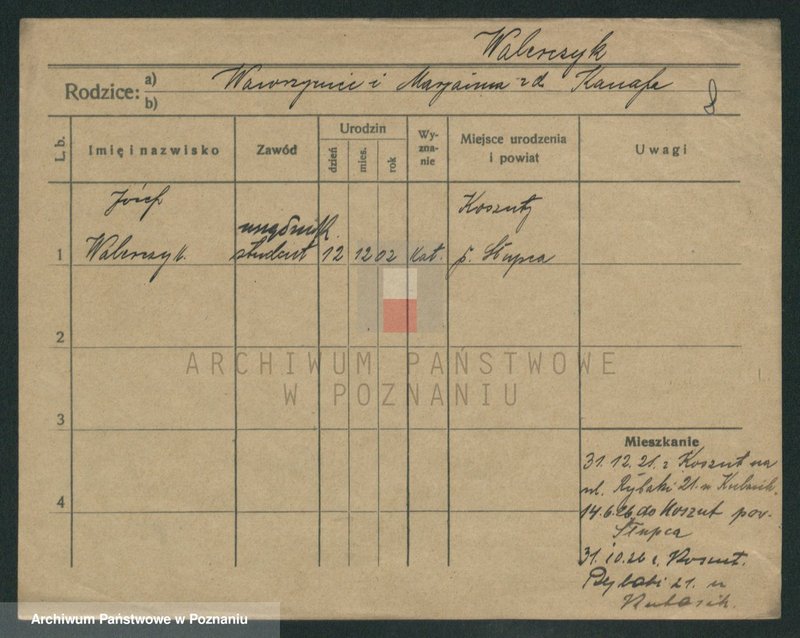 Walerczyk
Rodzice: a) b) Wawrzyniec i Marjanna z d. Kanafa
8
L. b. Imię i nazwisko Zawód Urodzin dzień mies. rok Wyznanie Miejsce urodzenia i powiat Uwagi
Józef Koszuty
1 Walerczyk. student 12 12 02 kat. p. Słupca
2
3
4
Mieszkanie
31. 12. 21. z Koszut na
ul. Rybaki 21. u Kubasik.
14.6.26 do Koszut pow.
Słupca
31.10.26 z Koszut.
Rybaki 21. u
Kubasik.
ARCHIWUM PAŃSTWOWE
W POZNANIU
Archiwum Państwowe w Poznaniu